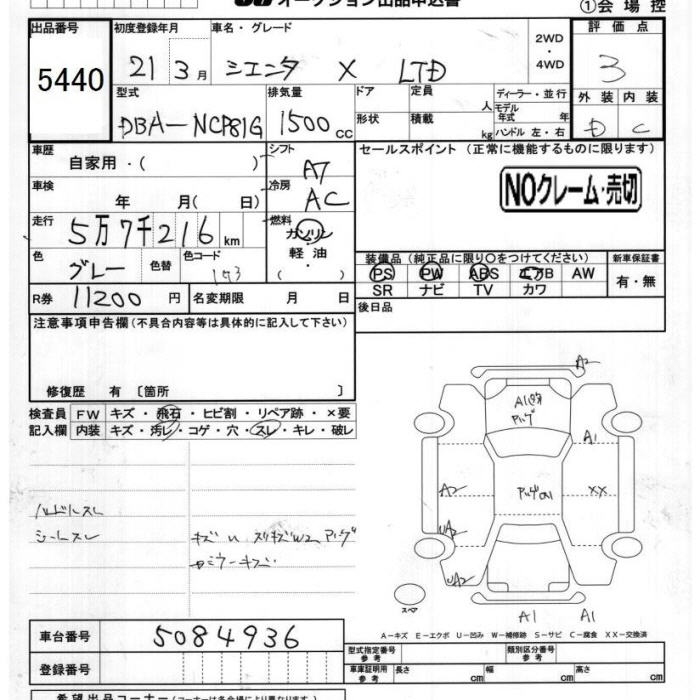 オークション出品申込書
①会場控
出品番号
5440
初度登録年月
21 3月
車名・グレード
シエンタ X LTD
2WD
・
4WD
評価点
3
型式
DBA-NCP81G
排気量
1500 cc
ドア
形状
定員
人
積載
kg
ディーラー・並行
モデル年式
年
ハンドル 左・右
外装 内装
D C
車歴
自家用・( )
シフト
A7
セールスポイント (正常に機能するものに限ります)
NOクレーム・売切
車検
年 月( 日)
冷房
AC
走行
5万7千216km
燃料
ガソリン
・
軽油
( )
色
グレー
色替
色コード
1C3
装備品 (純正品に限り〇をつけてください)
PS PW ABS エアB AW
SR ナビ TV カワ
新車保証書
有・無
R券 11200 円
名変期限 月 日
後日品
注意事項申告欄 (不具合内容等は具体的に記入して下さい)
修復歴 有 〔箇所 〕
検査員 FW キズ・飛石・ヒビ割・リペア跡・×要
記入欄 内装 キズ・汚レ・コゲ・穴・スレ・キレ・破レ
ハンドルスレ
シートスレ
A2
A1
A2
XX
UA2
UA2
A1 A1
スペア
A-キズ E-エクボ U-凹み W-補修跡 S-サビ C-腐食 XX-交換済
車台番号
5084936
登録番号
型式指定番号
参考
類別区分番号
参考
車庫証明用
参考
長さ cm 幅 cm 高さ cm
希望出品コーナー (コーナーは各会場により異なります。)